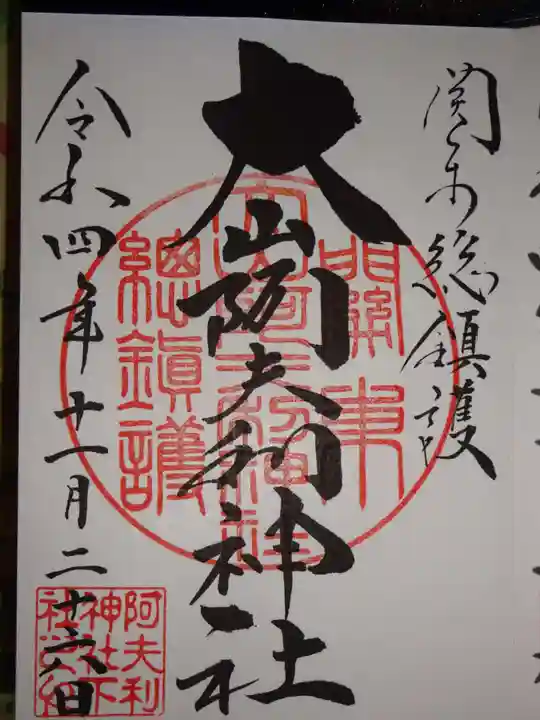 関東総鎮護
大山阿夫利神社
令和四年十一月二十六日
關東
大山阿夫利神社
總鎮護
阿夫利
神社下
社務局